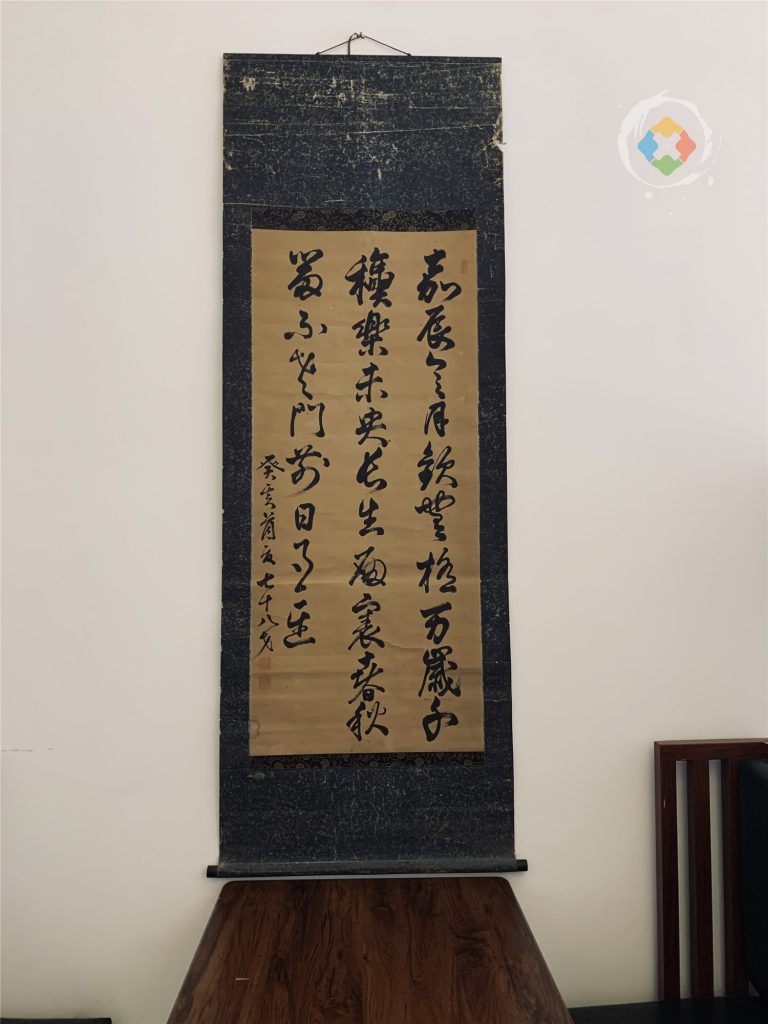 嘉辰令月歓無極万歳千
穐樂未央長生殿裏春秋
富不老門前日月遲
癸亥首夏七十八